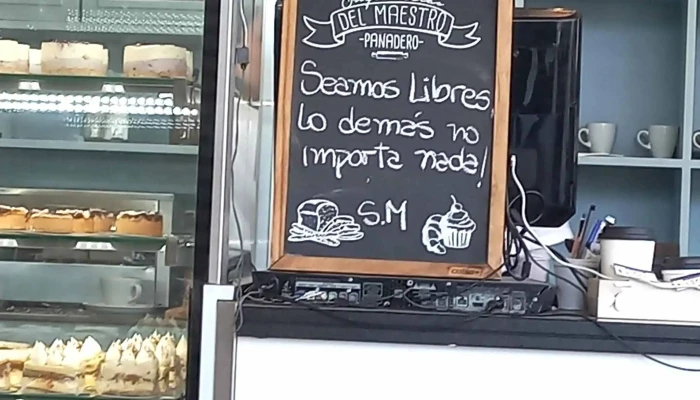 DEL MAESTRO
-PANADERO-
Seamos Libres,
lo demás no
importa nada!
S.M